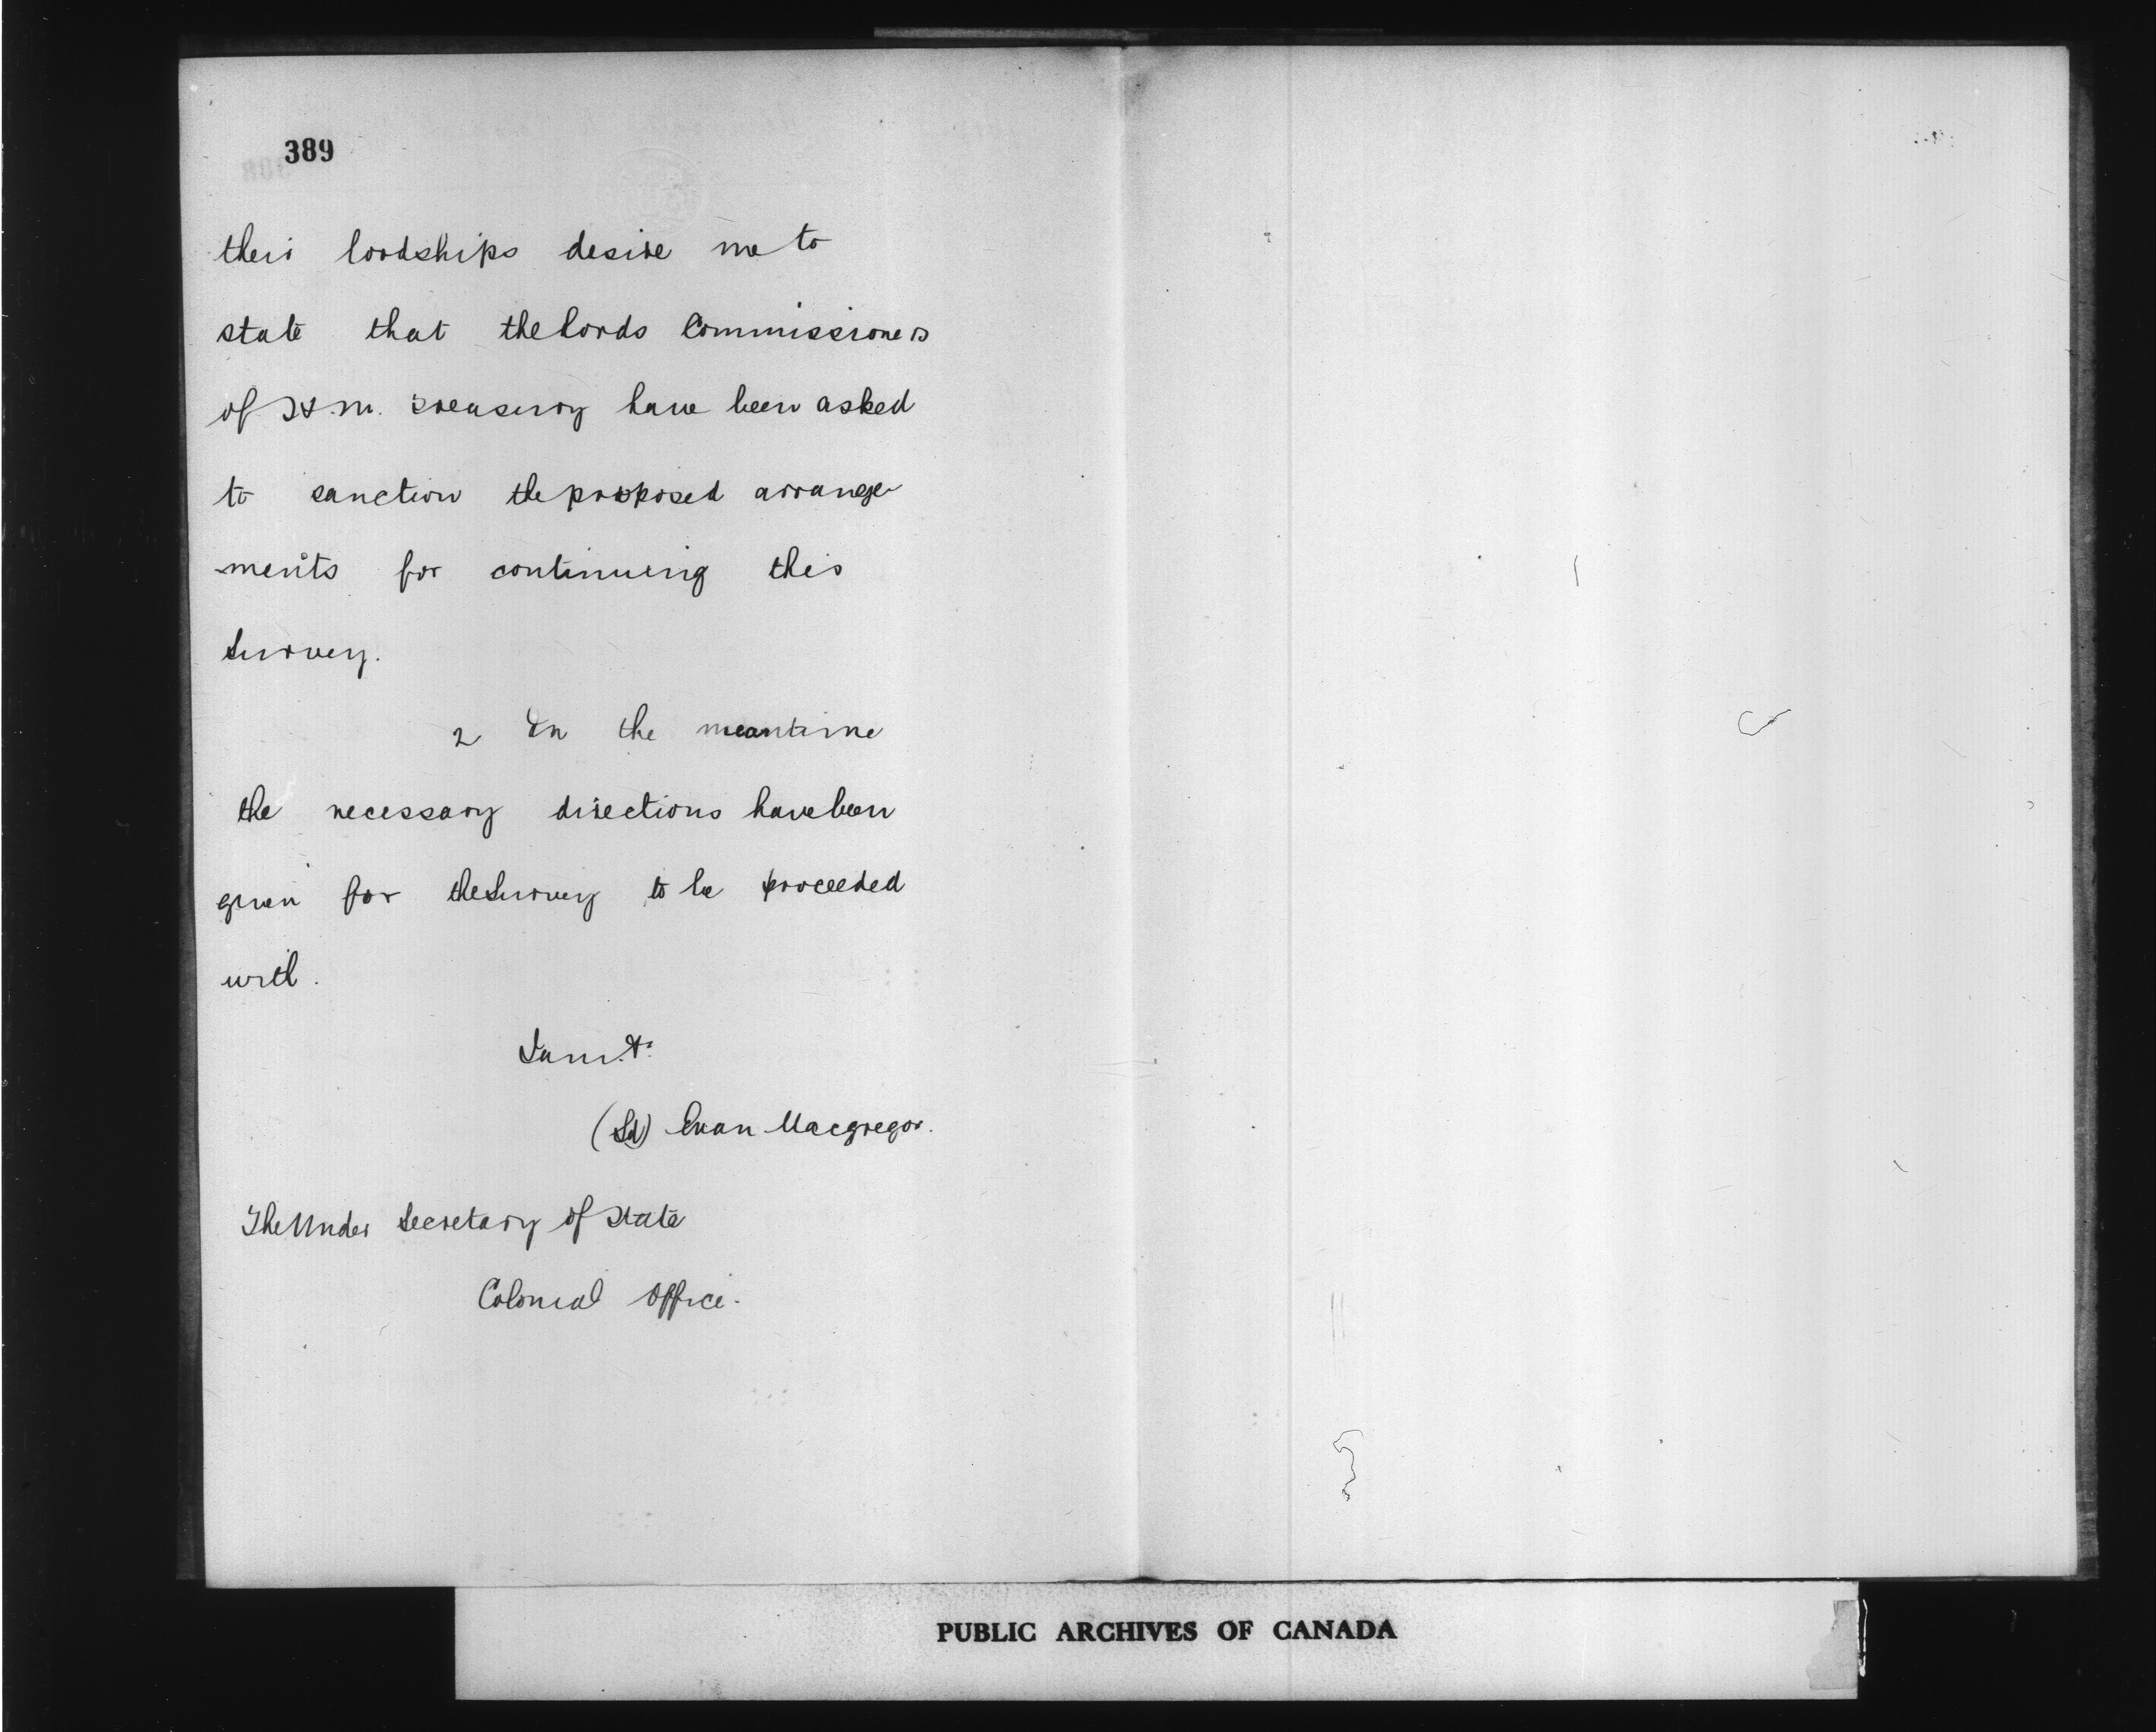 389
their lordships desire me to
state that the Lords Commissioners
of H.M. Treasury have been asked
to sanction the proposed arrange
ments for continuing this
Survey.
2 In the meantime
the necessary directions have been
given for the Survey to be proceeded
with.
I am. &c
(Sd) Evan Macgregor.
The Under Secretary of State
Colonial Office.
PUBLIC ARCHIVES OF CANADA